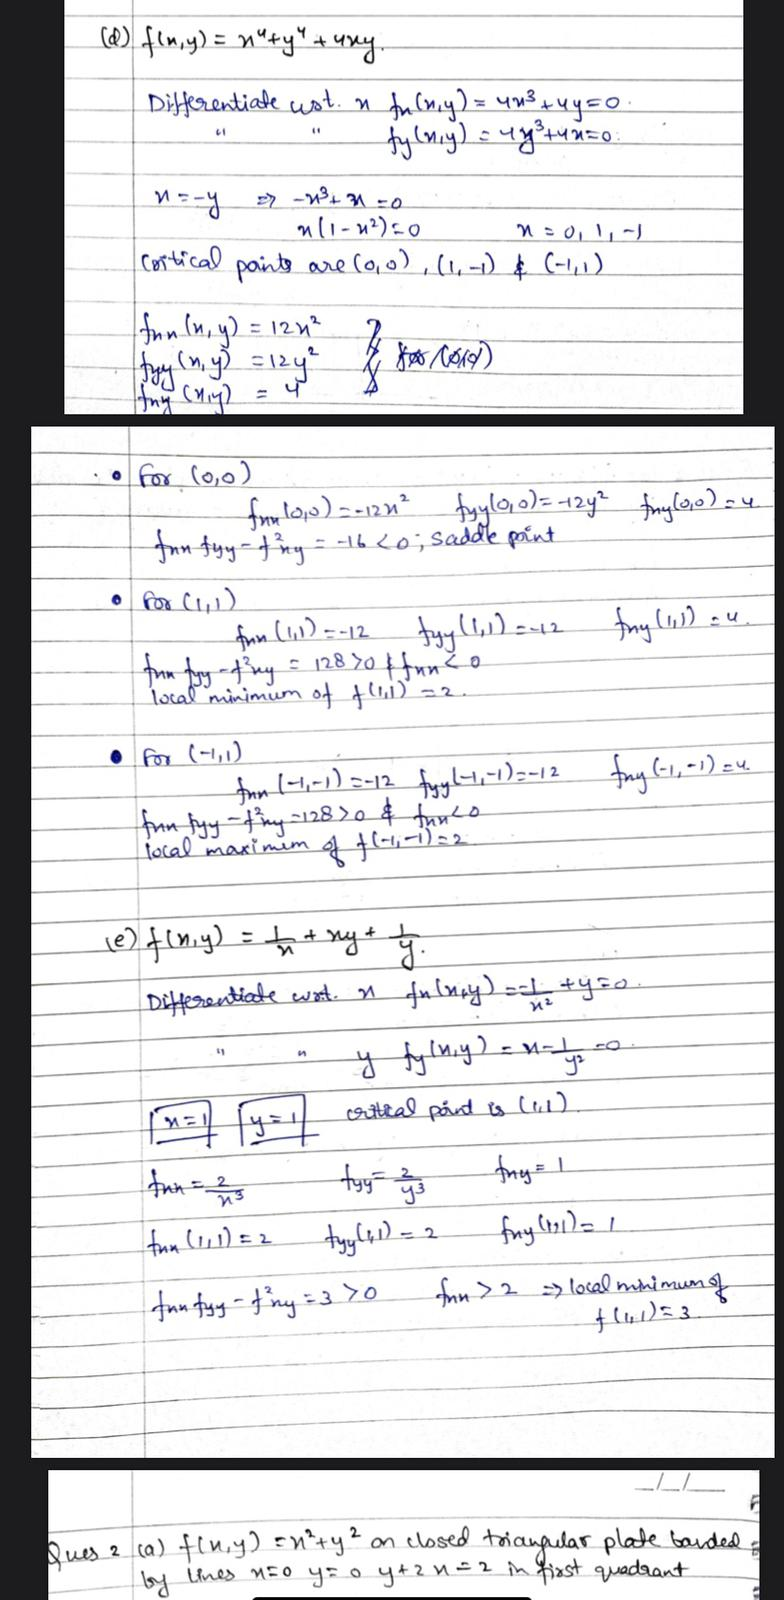 (d) f(x,y) = x⁴+y⁴+4xy.
Differentiate wrt. x fx(x,y) = 4x³+4y=0.
" " fy(x,y) = 4y³+4x=0.
x = -y ⇒ -x³+x = 0
x(1-x²)=0 x = 0, 1, -1
Critical points are (0,0), (1,-1) & (-1,1)
fxx(x,y) = 12x²
fyy(x,y) = 12y²
fxy(x,y) = 4
• For (0,0)
fxx(0,0) = -12x² fyy(0,0) = -12y² fxy(0,0) = 4
fxx fyy - f²xy = -16 <0; saddle point
• For (1,1)
fxx(1,1) = -12 fyy(1,1) = -12 fxy(1,1) = 4.
fxx fyy - f²xy = 128 >0 & fxx < 0
local minimum of f(1,1) = 2.
• For (-1,1)
fxx(-1,-1) = -12 fyy(-1,-1) = -12 fxy(-1,-1) = 4.
fxx fyy - f²xy = 128 >0 & fxx <0
local maximum of f(-1,-1) = 2
(e) f(x,y) = 1/x + xy + 1/y.
Differentiate wrt. x fx(x,y) = -1/x² + y = 0.
" " y fy(x,y) = x - 1/y² = 0.
x = 1 y = 1 critical point is (1,1)
fxx = 2/x³ fyy = 2/y³ fxy = 1
fxx(1,1) = 2 fyy(1,1) = 2 fxy(1,1) = 1
fxx fyy - f²xy = 3 >0 fxx > 2 ⇒ local minimum of
f(1,1) = 3.
_/_/_
Ques 2 (a) f(x,y) = x²+y² on closed triangular plate bounded
by lines x=0 y=0 y+2x=2 in first quadrant